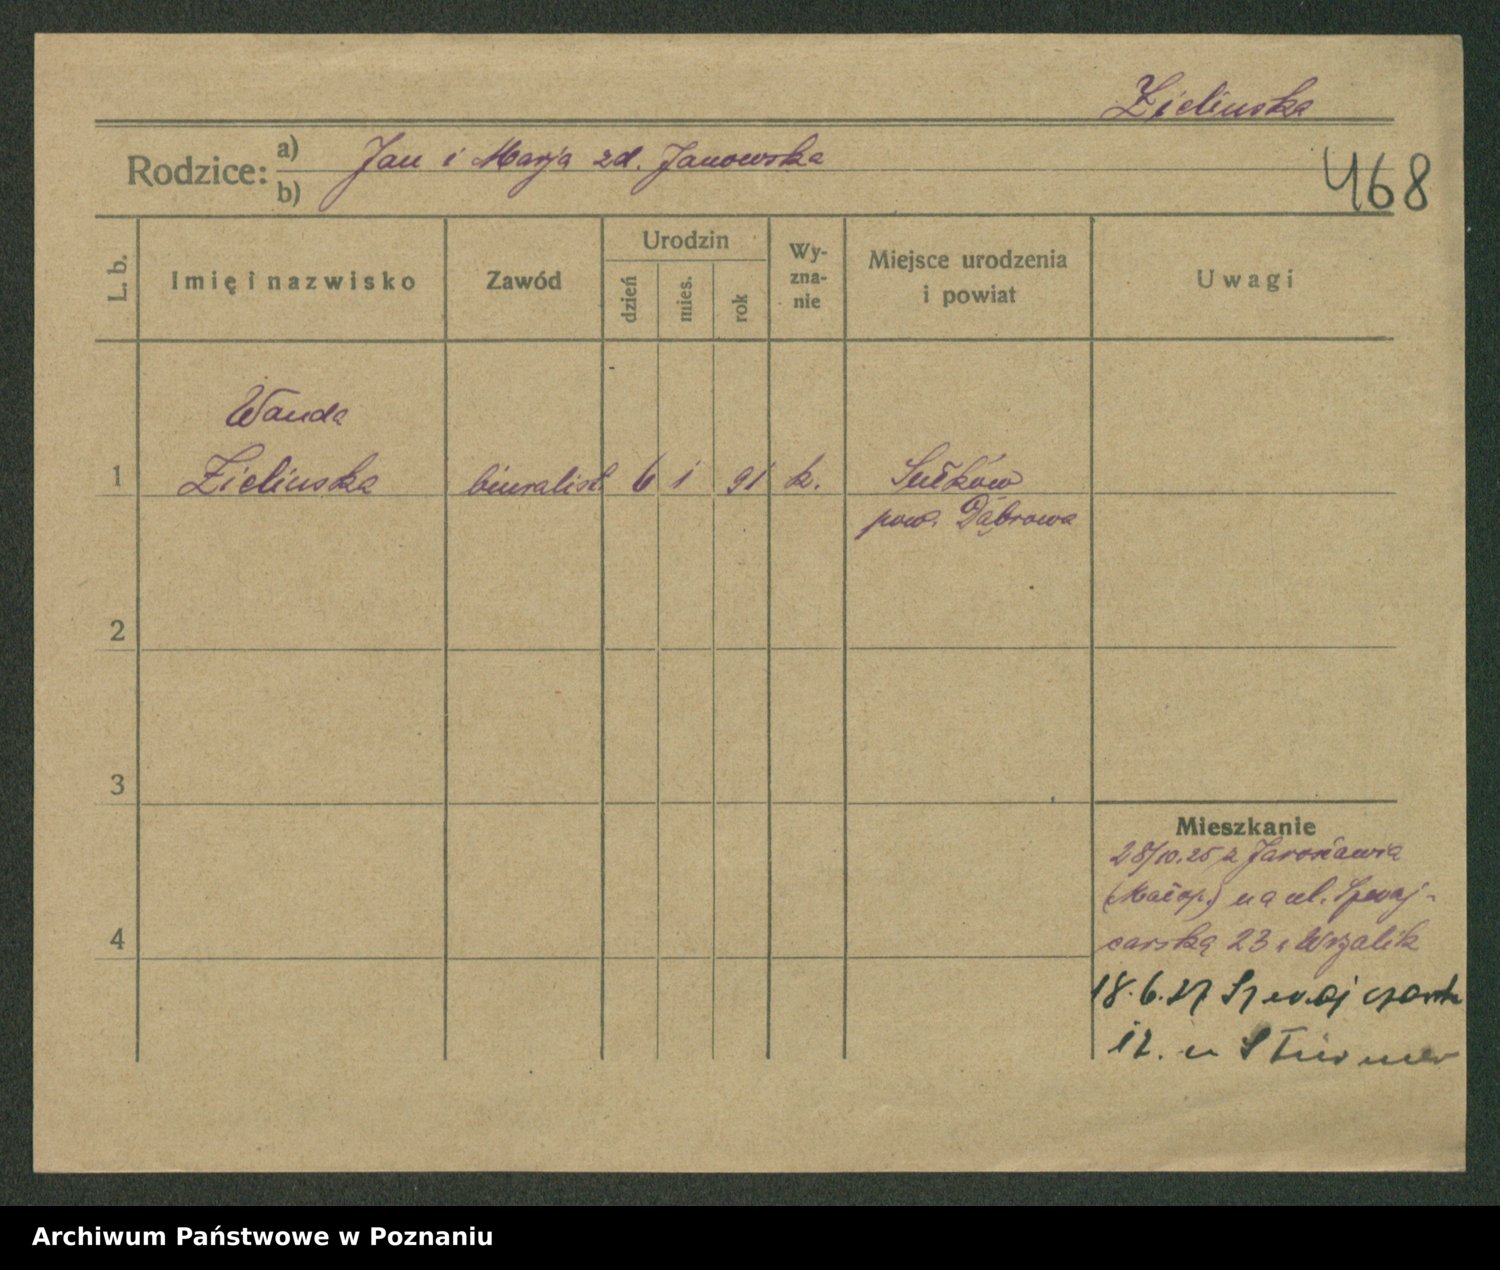 Zielinska
Rodzice: a) b) Jan i Marja zd. Janowska
468
L. b. Imię i nazwisko Zawód Urodzin dzień mies. rok Wy-zna-nie Miejsce urodzenia i powiat Uwagi
Wanda
1 Zielinska biuralist. 6 1 91 k. Sułków
pow. Dąbrowa
2
3
Mieszkanie
28/10.25 z Jarosławia
(Małop.) na ul. Szwaj-
4 carską 23 u Wrzalik
18.6.27 Szwajcarska
12. u
Archiwum Państwowe w Poznaniu